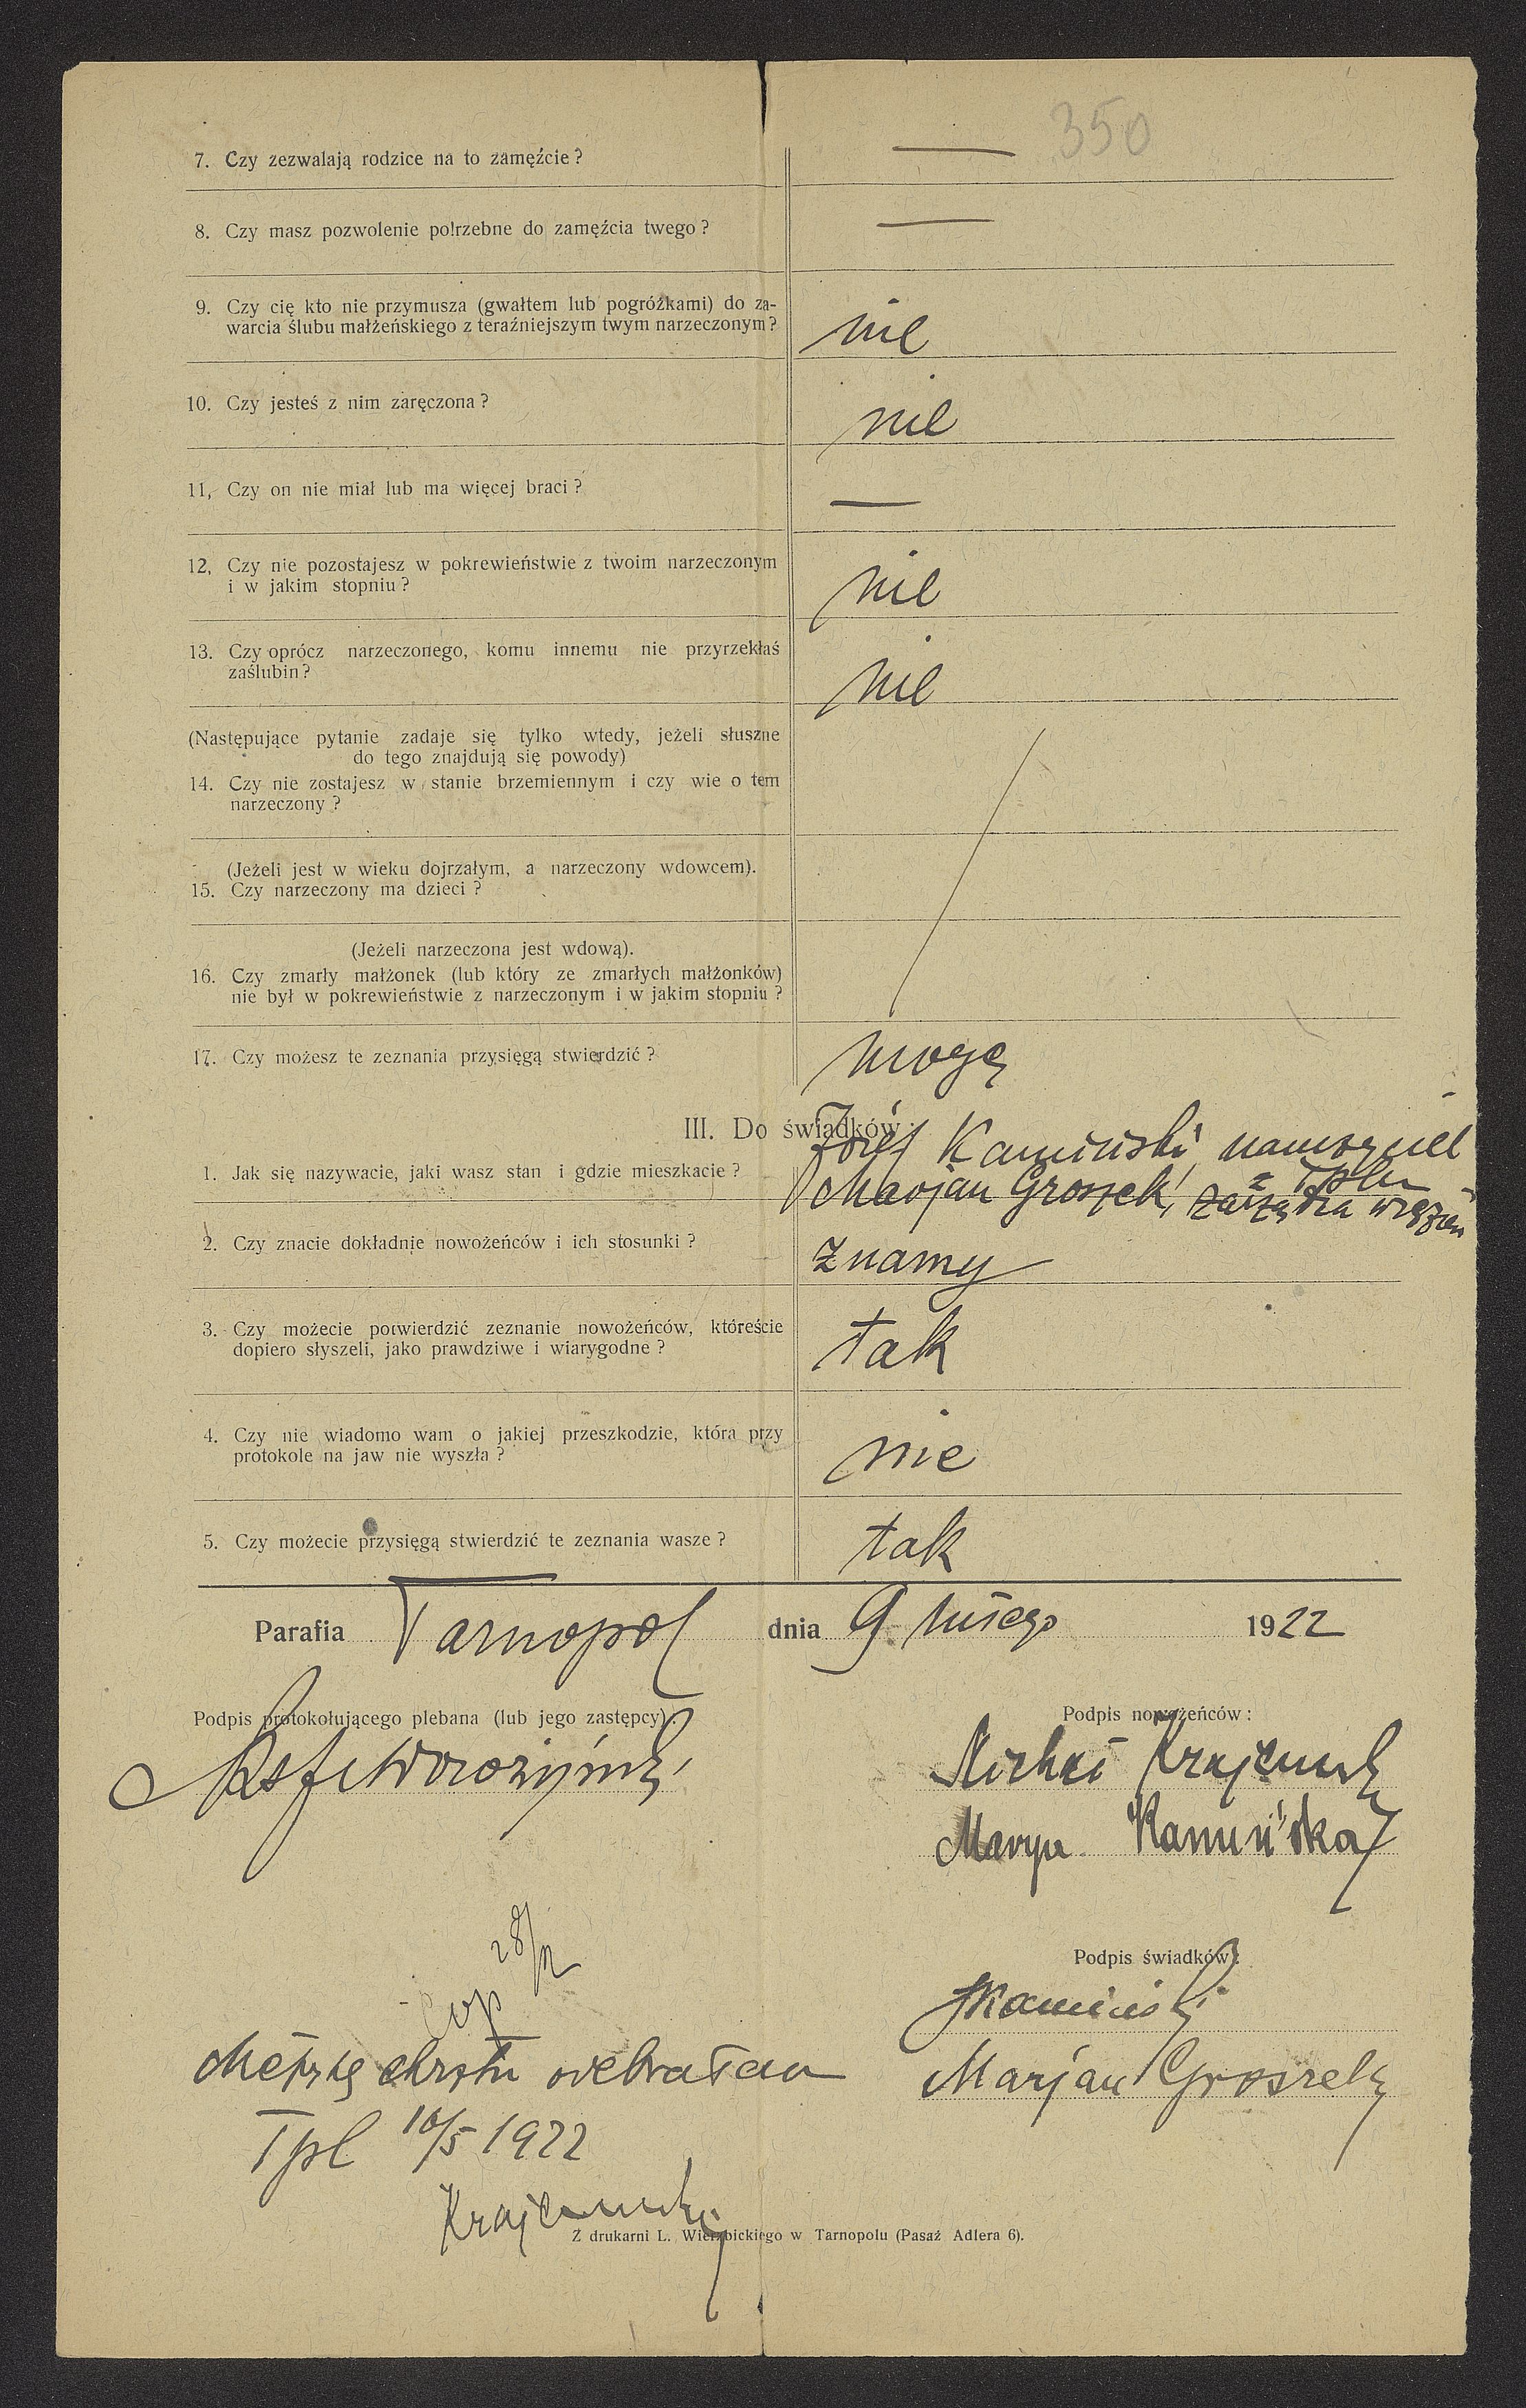 350
7. Czy zezwalają rodzice na to zamęźcie? —
8. Czy masz pozwolenie potrzebne do zamęźcia twego? —
9. Czy cię kto nie przymusza (gwałtem lub pogróżkami) do za-
warcia ślubu małżeńskiego z teraźniejszym twym narzeczonym? nie
10. Czy jesteś z nim zaręczona? nie
11, Czy on nie miał lub ma więcej braci? —
12, Czy nie pozostajesz w pokrewieństwie z twoim narzeczonym
i w jakim stopniu? nie
13. Czy oprócz narzeczonego, komu innemu nie przyrzekłaś
zaślubin? nie
(Następujące pytanie zadaje się tylko wtedy, jeżeli słuszne
do tego znajdują się powody)
14. Czy nie zostajesz w stanie brzemiennym i czy wie o tem
narzeczony?
(Jeżeli jest w wieku dojrzałym, a narzeczony wdowcem).
15. Czy narzeczony ma dzieci?
(Jeżeli narzeczona jest wdową).
16. Czy zmarły małżonek (lub który ze zmarłych małżonków)
nie był w pokrewieństwie z narzeczonym i w jakim stopniu?
17. Czy możesz te zeznania przysięgą stwierdzić? mogę
III. Do świadków:
Józef Kamiński,
1. Jak się nazywacie, jaki wasz stan i gdzie mieszkacie? z Tpla
Marjan Groszek,
2. Czy znacie dokładnie nowożeńców i ich stosunki? znamy
3. Czy możecie potwierdzić zeznanie nowożeńców, któreście
dopiero słyszeli, jako prawdziwe i wiarygodne? tak
4. Czy nie wiadomo wam o jakiej przeszkodzie, która przy
protokole na jaw nie wyszła? nie
5. Czy możecie przysięgą stwierdzić te zeznania wasze? tak
Parafia Tarnopol dnia 9 lutego 1922
Podpis protokołującego plebana (lub jego zastępcy):
Podpis nowożeńców:
Michał
Marya Kamińska
28/
Podpis świadków:
JKamiński
Metrykę chrztu odebrałem
Marjan Groszek
Tpl 10/5 1922
Z drukarni L. Wierzbickiego w Tarnopolu (Pasaż Adlera 6).